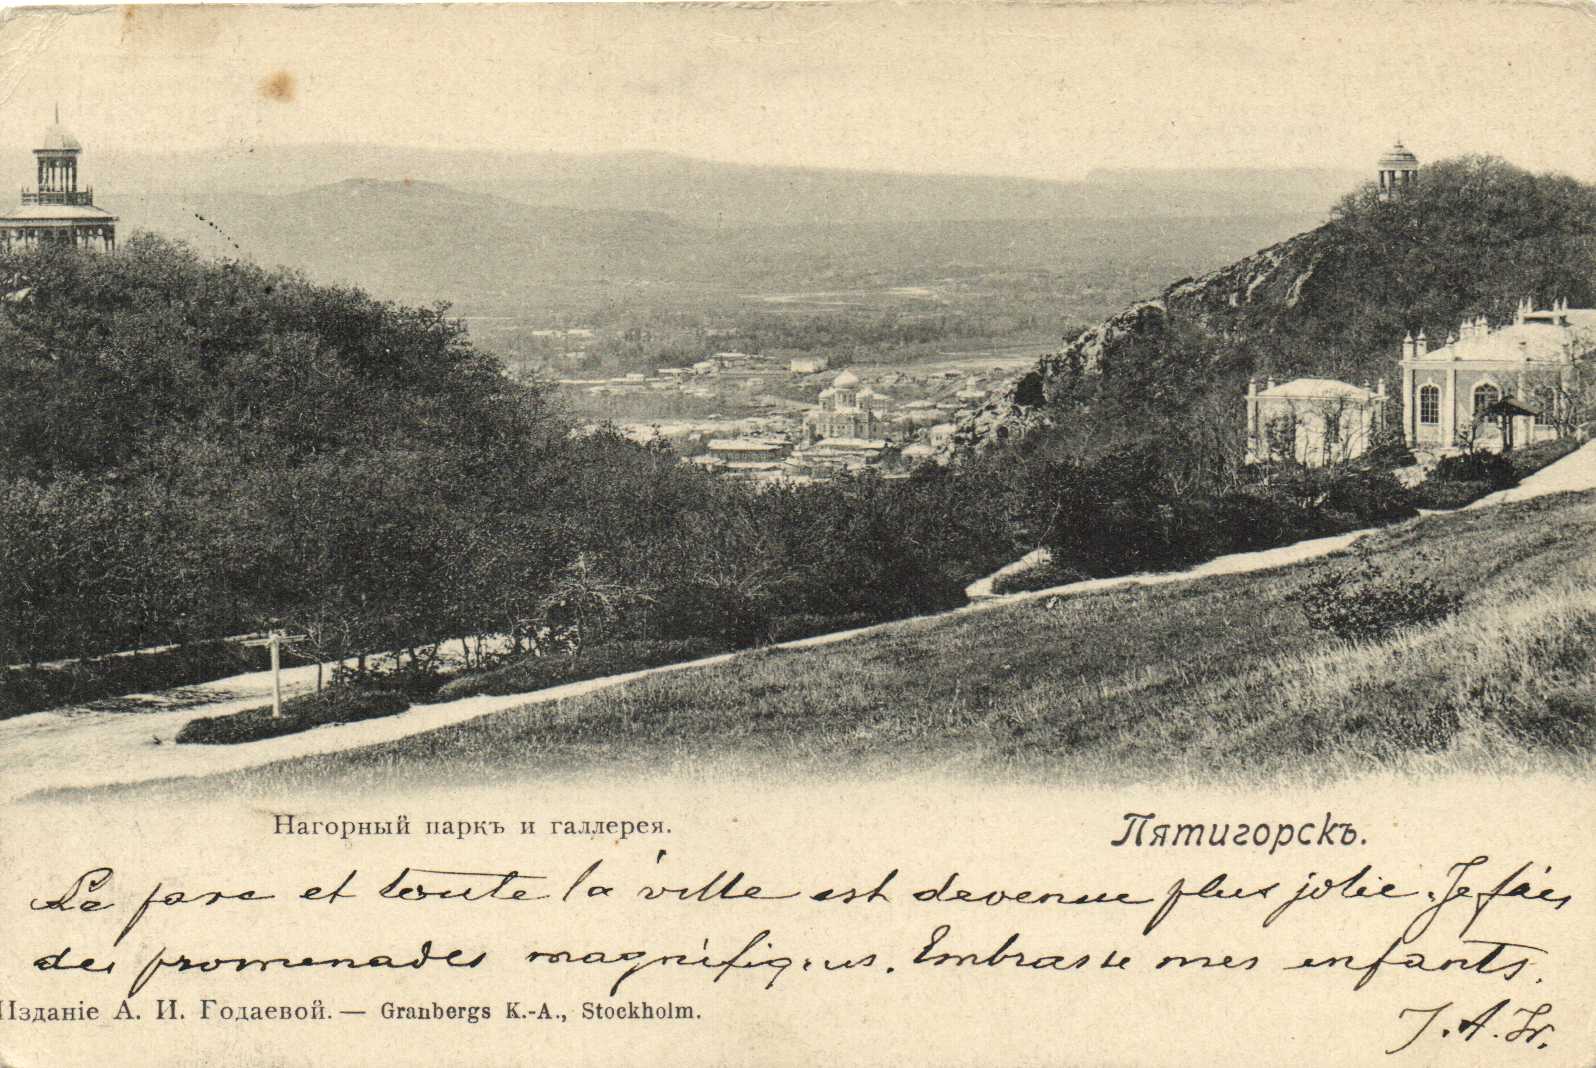 Нагорный паркъ и галлерея.
Пятигорскъ.
Le parc et toute la ville est devenue plus jolie. Je fais
des promenades magnifiques. Embrasse mes enfants.
J. A.
Изданіе А. И. Годаевой. — Granbergs K.-A., Stockholm.